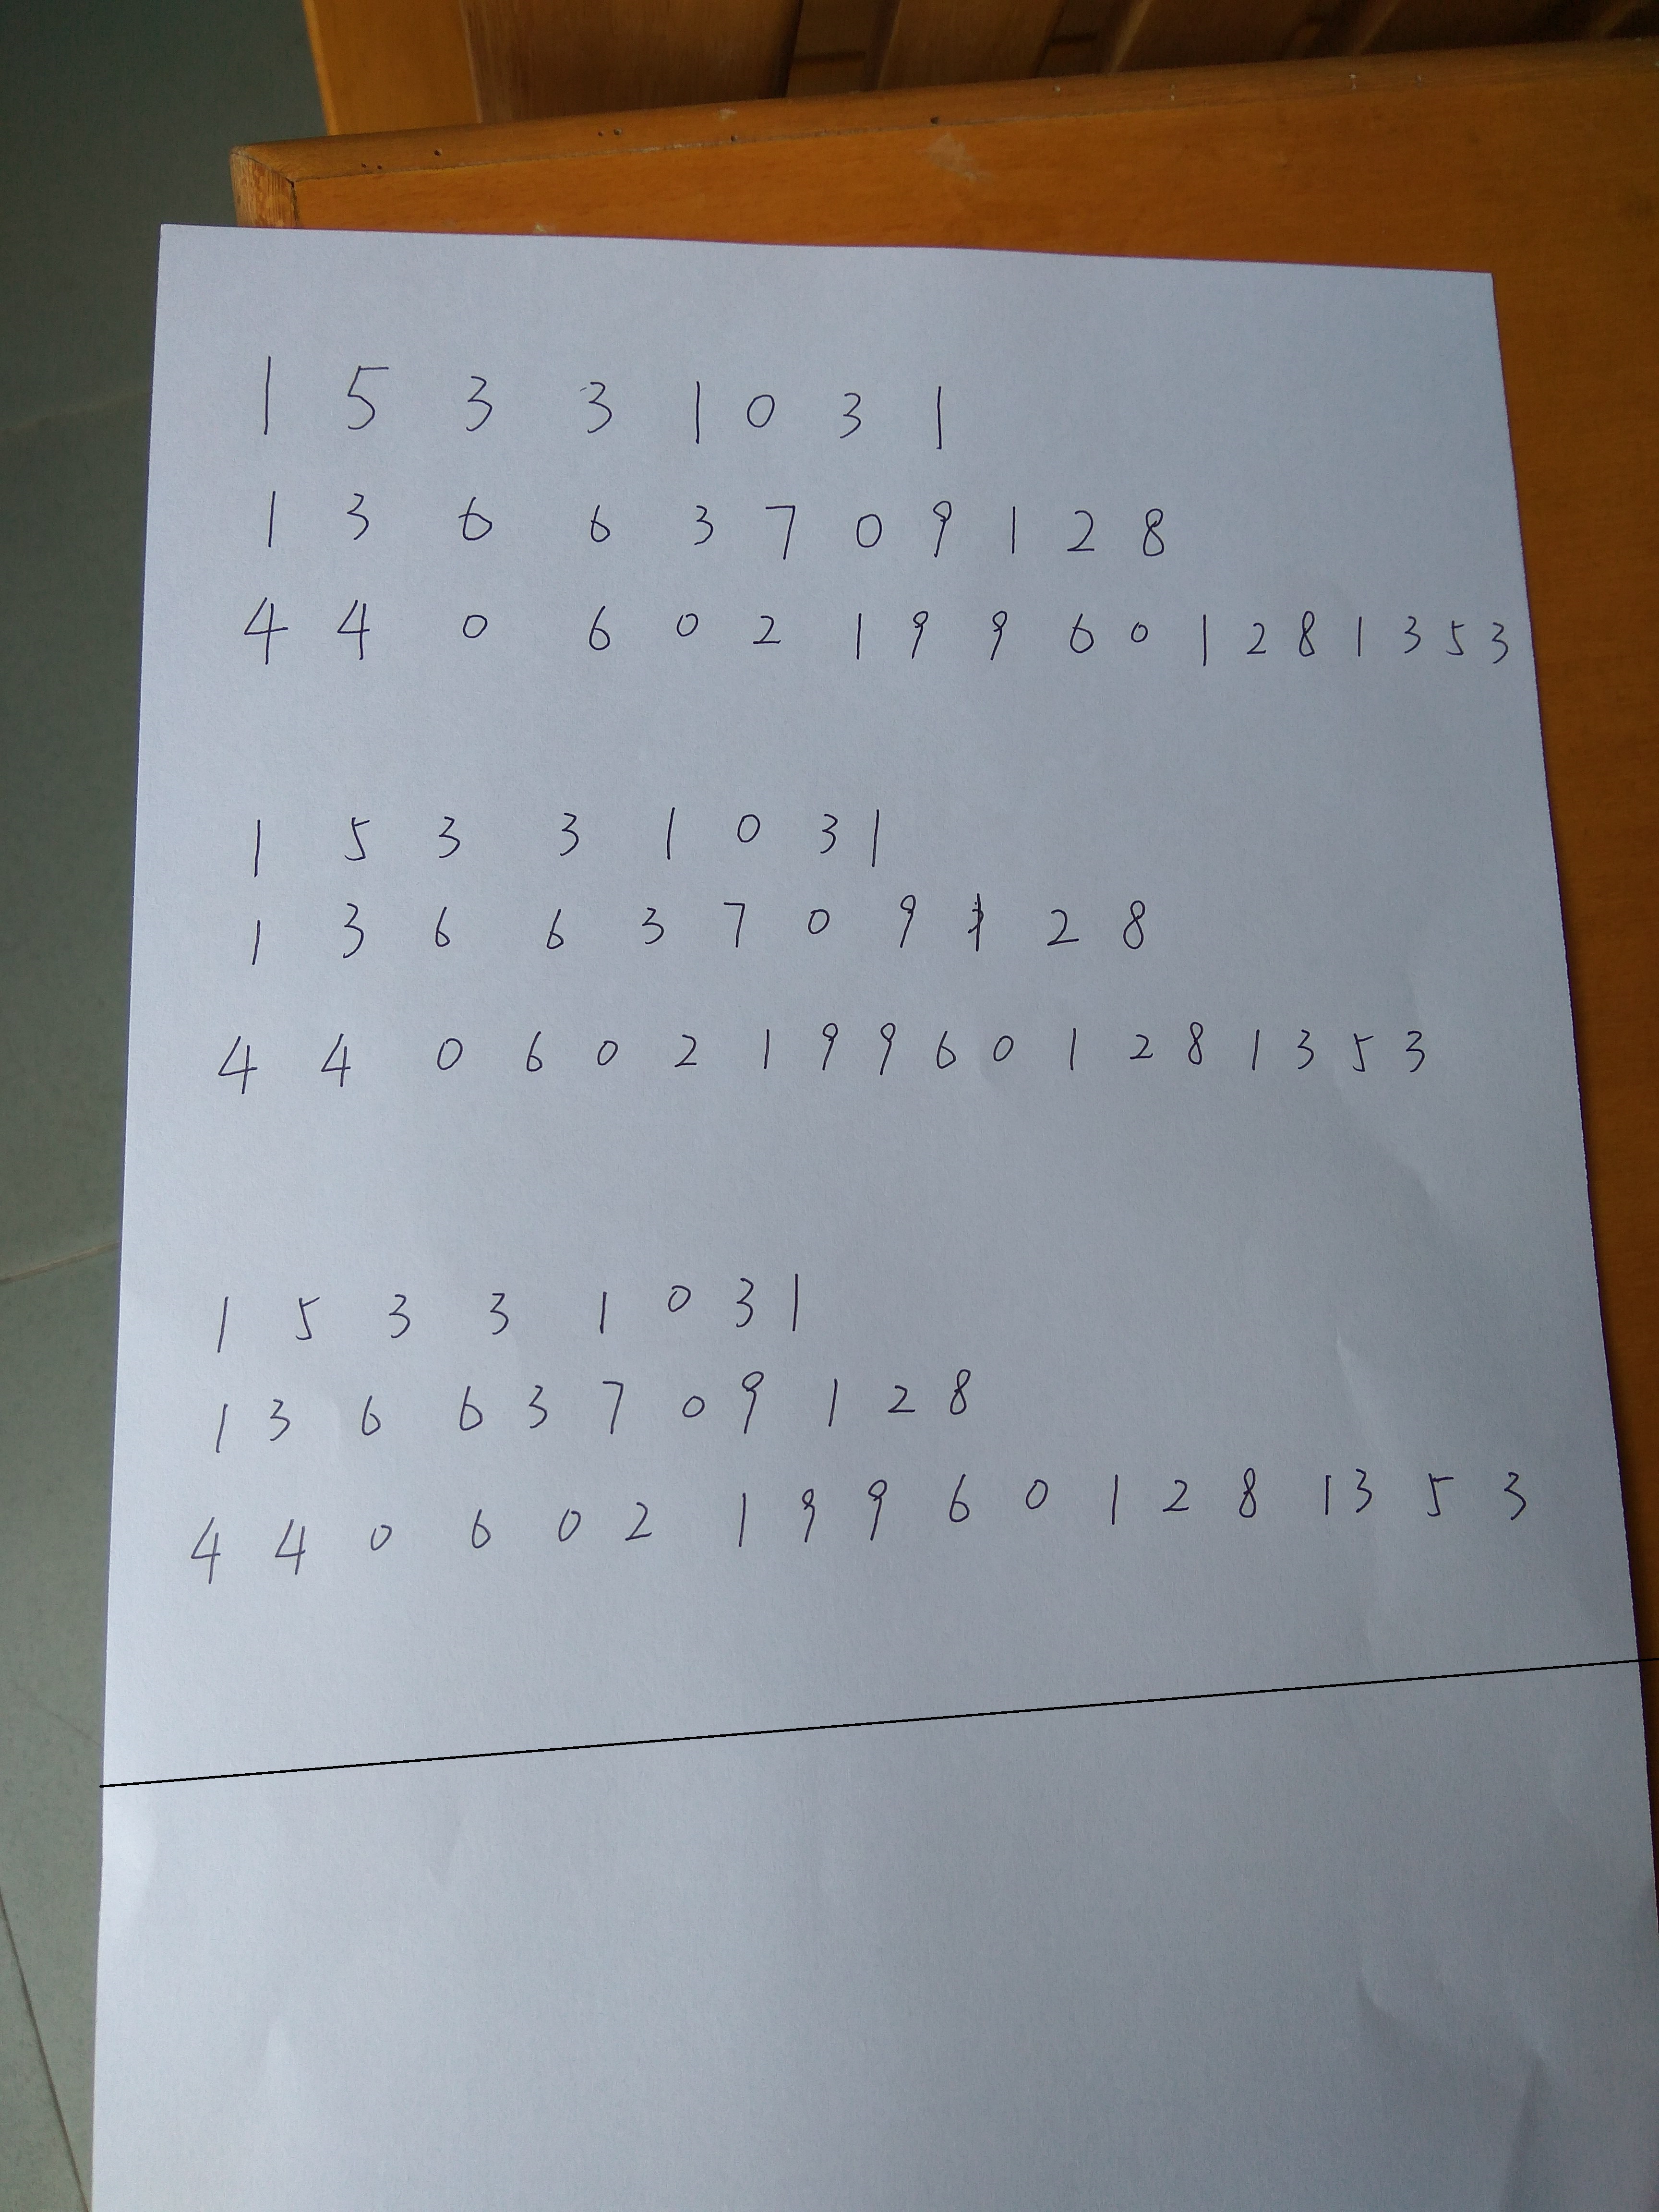 1 5 3 3 1 0 3 1
1 3 6 6 3 7 0 9 1 2 8
4 4 0 6 0 2 1 9 9 6 0 1 2 8 1 3 5 3
1 5 3 3 1 0 3 1
1 3 6 6 3 7 0 9 1 2 8
4 4 0 6 0 2 1 9 9 6 0 1 2 8 1 3 5 3
1 5 3 3 1 0 3 1
1 3 6 6 3 7 0 9 1 2 8
4 4 0 6 0 2 1 9 9 6 0 1 2 8 1 3 5 3